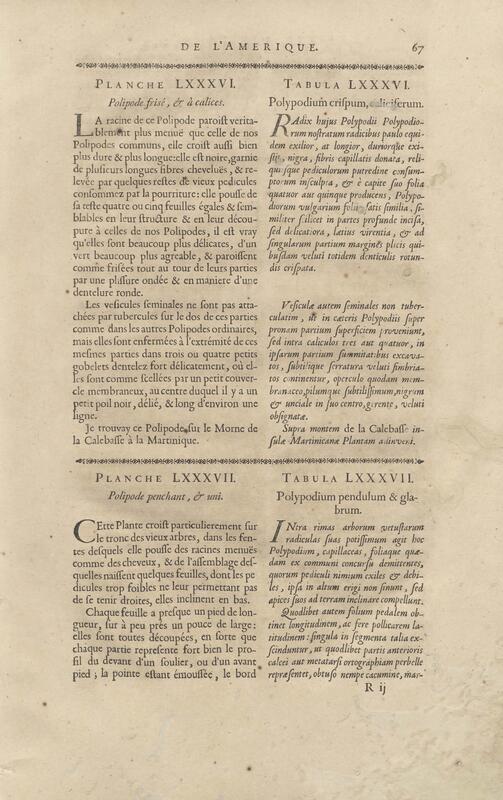 DE L'AMERIQUE. 67
PLANCHE LXXXVI.
Polipode frisé, & à calices.
LA racine de ce Polipode paroist verita-
blement plus menuë que celle de nos
Polipodes communs, elle croist aussi bien
plus dure & plus longue: elle est noire, garnie
de plusieurs longues fibres chevelués, & re-
levée par quelques restes de vieux pedicules
consommez par la pourriture: elle pousse de
sa teste quatre ou cinq feüilles égales & sem-
blables en leur structure & en leur décou-
pure à celles de nos Polipodes, il est vray
qu'elles sont beaucoup plus délicates, d'un
vert beaucoup plus agreable, & paroissent
comme frisées tout au tour de leurs parties
par une plissure ondée & en maniere d'une
dentelure ronde.
Les vesicules seminales ne sont pas atta-
chées par tubercules sur le dos de ces parties
comme dans les autres Polipodes ordinaires,
mais elles sont enfermées à l'extrémité de ces
mesmes parties dans trois ou quatre petits
gobelets dentelez fort délicatement, où el-
les sont comme scellées par un petit couver-
cle membraneux, au centre duquel il y a un
petit poil noir, délié, & long d'environ une
ligne.
Je trouvay ce Polipode sur le Morne de
la Calebasse à la Martinique.
TABULA LXXXVI.
Polypodium crispum, caliciferum.
RAdix hujus Polypodii Polypodio-
rum nostratum radicibus paulo equi-
dem exilior, at longior, duriorque exi-
stit, nigra, fibris capillatis donata, reli-
quisque pediculorum putredine consum-
ptorum insculpta, & è capite suo folia
quatuor aut quinque producens, Polypo-
diorum vulgarium foliis satis similia, si-
militer scilicet in partes profunde incisa,
sed delicatiora, latius virentia, & ad
singularum partium margines plicis qui-
busdam veluti totidem denticulis rotun-
dis crispata.
Vesiculæ autem seminales non tuber-
culatim, ut in cæteris Polypodiis super
pronam partium superficiem proveniunt,
sed intra caliculos tres aut quatuor, in
ipsarum partium summitatibus excava-
tos, subtilique serratura veluti fimbria-
tos continentur, operculo quodam mem-
branaceo, pilumque subtilissimum, nigrum
& unciale in suo centro, gerente, veluti
obsignatæ.
Supra montem de la Calebasse in-
sulæ Martinicanæ Plantam adinveni.
PLANCHE LXXXVII.
Polipode penchant, & uni.
CEtte Plante croist particulierement sur
le tronc des vieux arbres, dans les fen-
tes desquels elle pousse des racines menuës
comme des cheveux, & de l'assemblage des-
quelles naissent quelques feuilles, dont les pe
dicules trop foibles ne leur permettant pas
de se tenir droites, elles inclinent en bas.
Chaque feüille a presque un pied de lon-
gueur, sur à peu près un pouce de large:
elles sont toutes découpées, en sorte que
chaque partie represente fort bien le pro-
fil du devant d'un soulier, ou d'un avant
pied; la pointe estant émoussée, le bord
TABULA LXXXVII.
Polypodium pendulum & gla-
brum.
INtra rimas arborum vetustarum
radiculas suas potissimum agit hoc
Polypodium, capillaceas, foliaque quæ-
dam ex communi concursu demittentes,
quorum pediculi nimium exiles & debi-
les, ipsa in altum erigi non sinunt, sed
apices suos ad terram inclinare compellunt.
Quodlibet autem folium pedalem ob-
tinet longitudinem, ac fere pollicarem la-
titudinem: singula in segmenta talia ex-
scinduntur, ut quodlibet partis anterioris
calcei aut metatarsi ortographiam perbelle
repræsentet, obtuso nempe cacumine, mar-
R ij